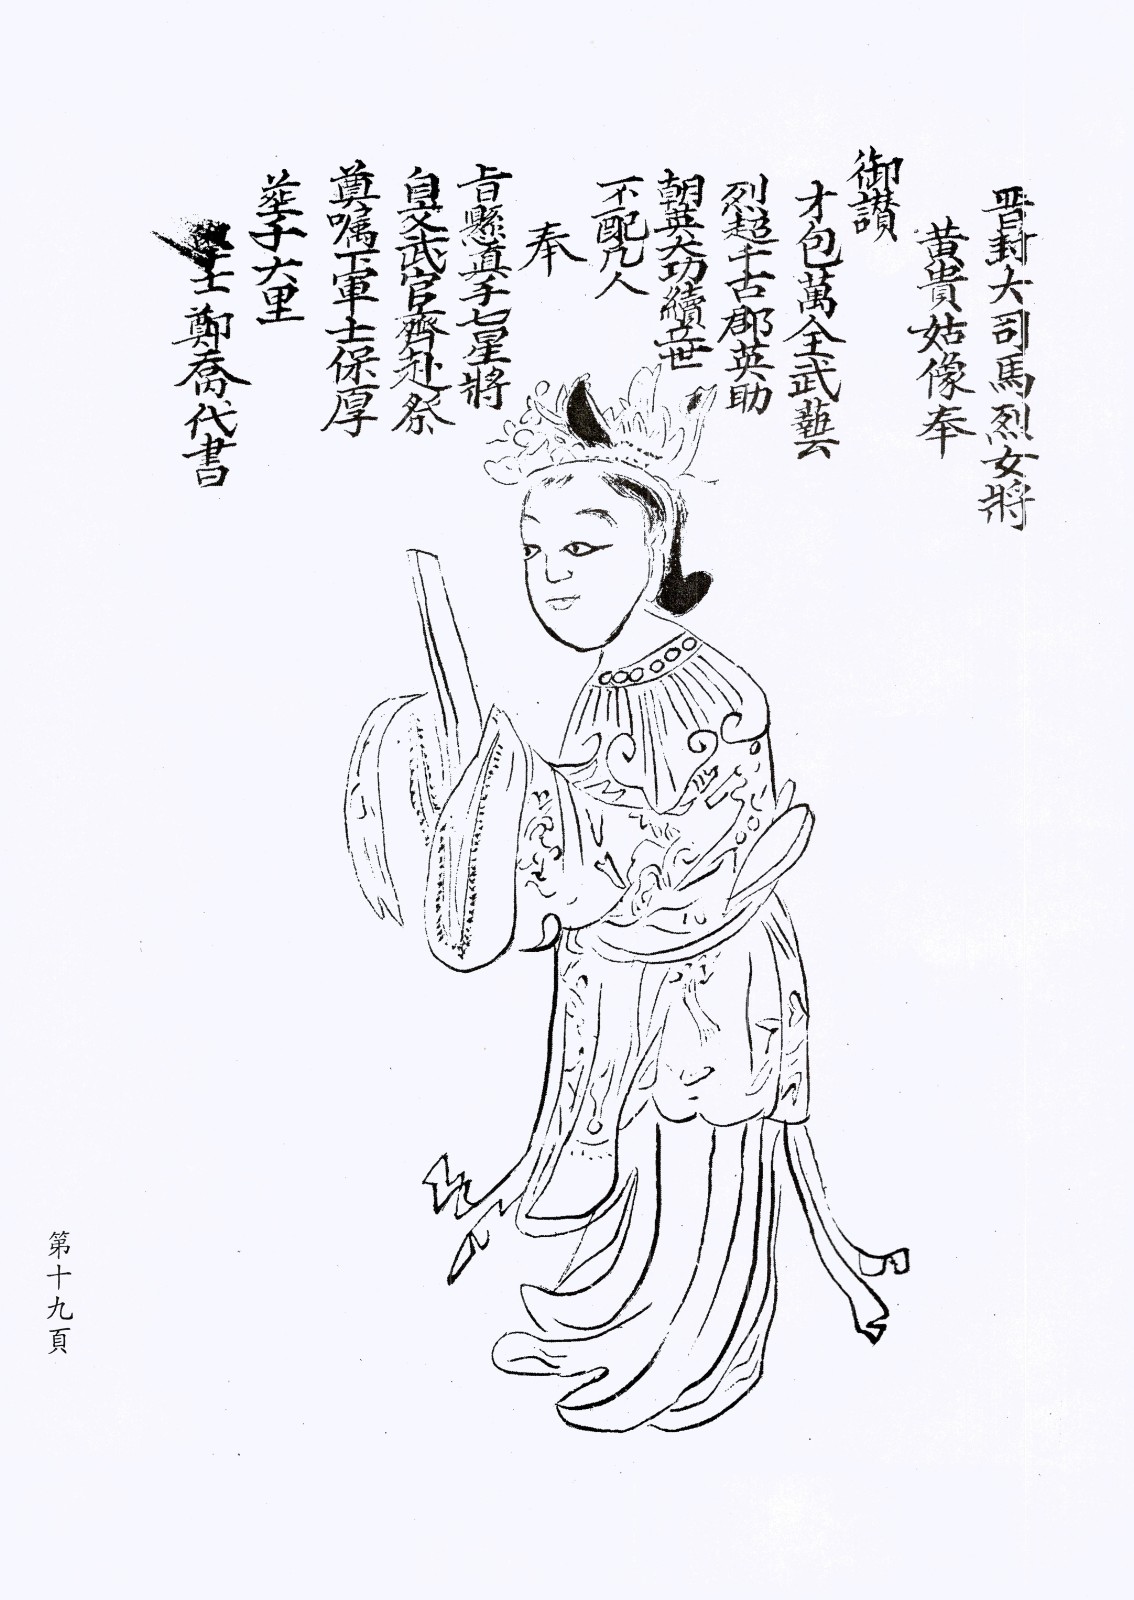 晋封大司馬烈女將
黃貴姑像奉
御讃
才包萬全武藝
烈超千古郡英助
朝英大功續立世
不配凡人
奉
旨懸真手七星將
自文武官齊赴祭
奠嘱下軍士保厚
塟子大里
士鄭喬代書
第十九頁